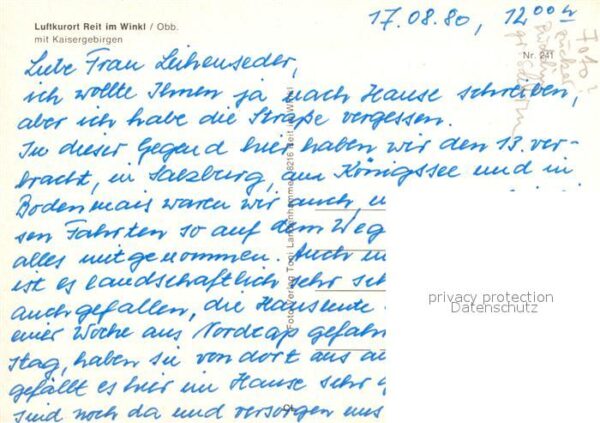 Luftkurort Reit im Winkl / Obb.
mit Kaisergebirgen
17.08.80, 12 00 h
Nr. 241
Liebe Frau Leihenseder,
ich wollte Ihnen ja nach Hause schreiben,
aber ich habe die Straße vergessen.
In dieser Gegend hier haben wir den 13. ver-
bracht, in Salzburg, am Königssee und in
Bodenmais waren wir auch, u
sen Fahrten so auf dem Weg
alles mitgenommen. Auch
ist es landschaftlich sehr
auch gefallen, die Hausleute
einer Woche aus Nordcap gefahr
stag, haben sie von dort aus
gefällt es hier im Hause sehr
sind noch da und versorgen uns
Foto-Verlag Toni Lamprechtshammer, 8216 Reit im Winkl
CL
privacy protection
Datenschutz